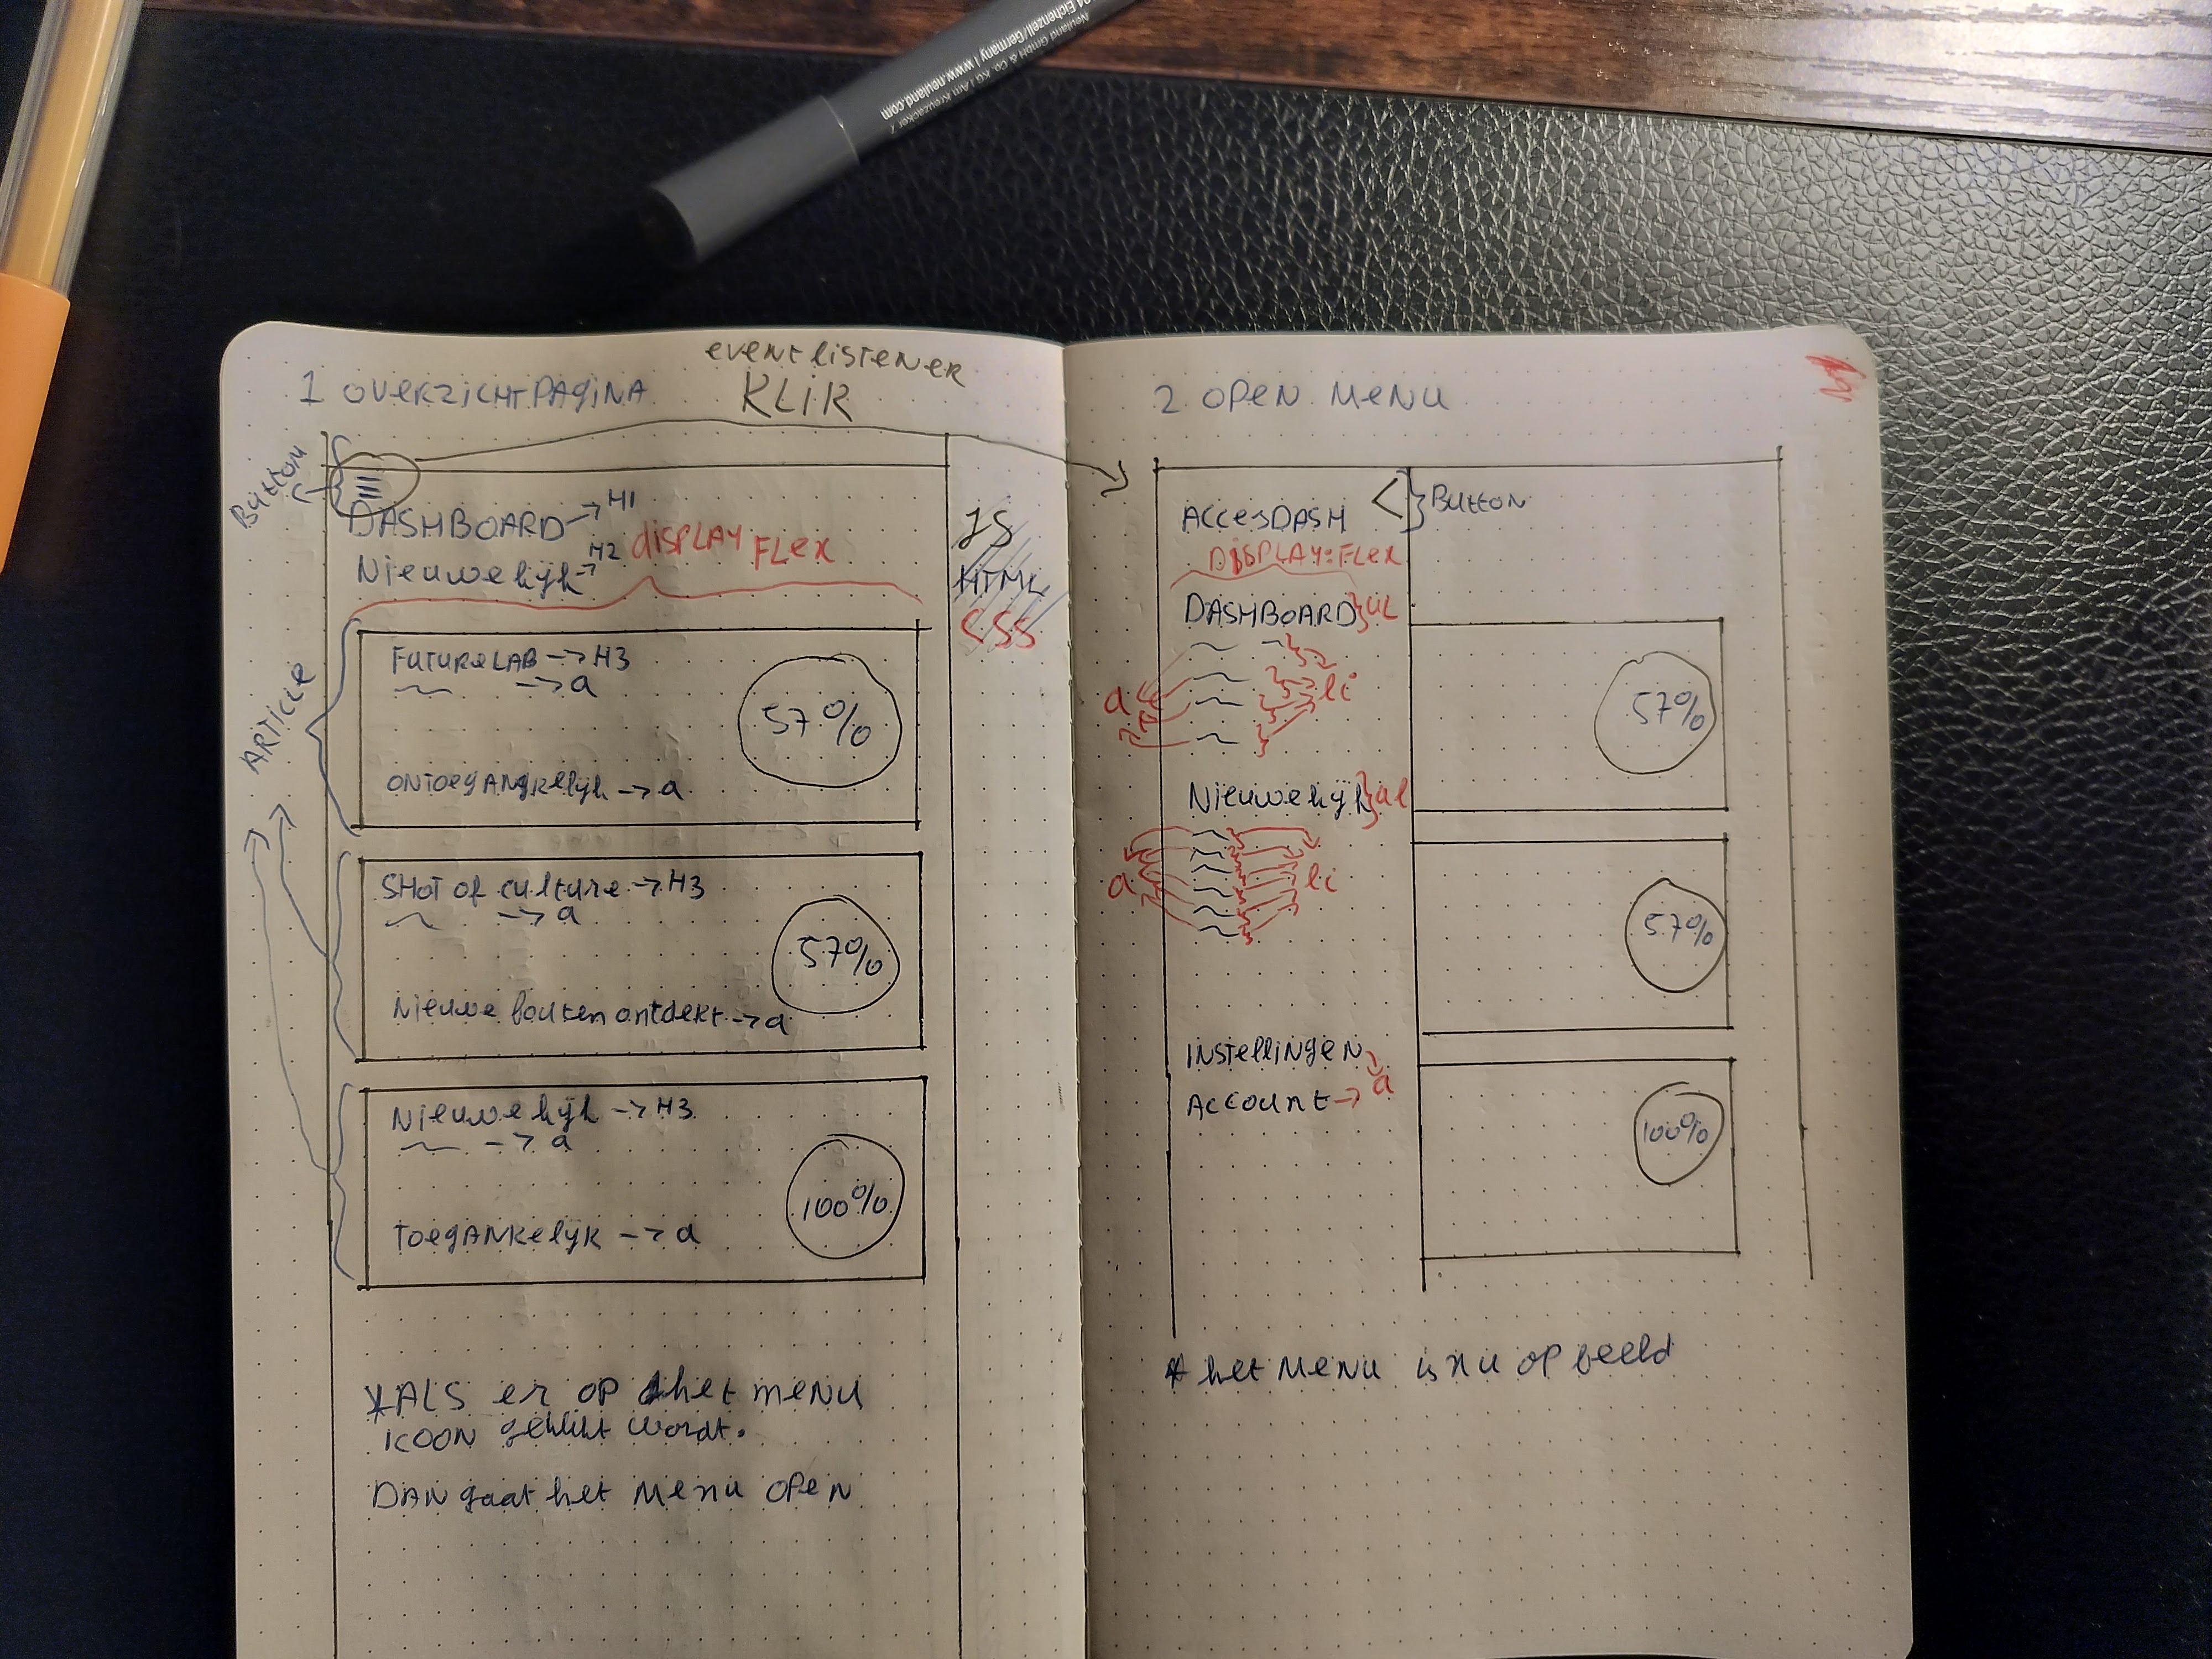 91 Eichenzell/Germany | www.neuland.com
Neuland GmbH & Co. KG | Am Kreuzacker 7
eventlistener
KLIK
1 OVERZICHTPAGINA
Button
DASHBOARD → H1
Nieuwekijk → H2
DISPLAY FLEX
JS
HTML
CSS
ARTICLE
FUTURELAB → H3
→ a
57%
ONTOEGANGKELIJK → a
SHOT OF culture → H3
→ a
57%
Nieuwe fouten ontdekt → a
Nieuwekijk → H3
→ a
100%
TOEGANKELIJK → a
*ALS er OP het menu
ICOON geklikt wordt.
DAN gaat het Menu OPEN
2 OPEN MENU
ACCESDASH
< } Button
DISPLAY: FLEX
DASHBOARD } UL
a
li
57%
Nieuwekijk } ul
a
li
57%
INSTELLINGEN → a
ACCOUNT → a
100%
* het MENU is nu OP beeld